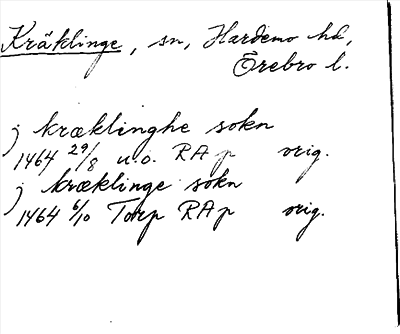 Kräklinge, sn, Hardemo hd,
Örebro l.
j kræklinghe sokn
1464 29/8 u.o. RAp orig.
j kræklinge sokn
1464 6/10 Torp RAp orig.